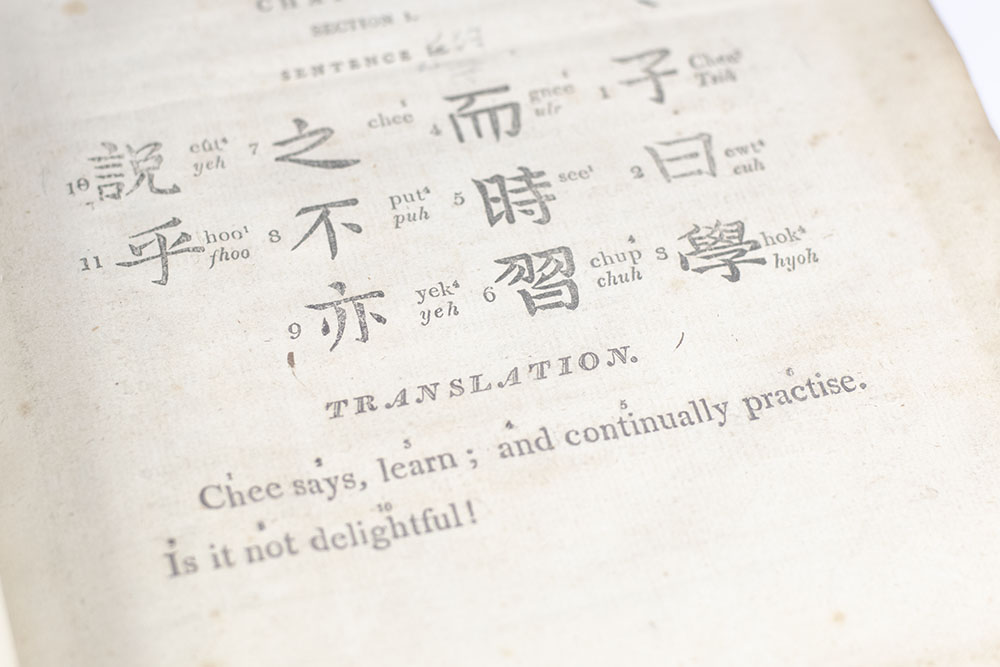 SECTION I.
SENTENCE
10 説 cüt⁴ yeh 7 之 chee¹ 4 而 gnee¹ ulr 1 子 Chee² Tsih
11 乎 hoo¹ fhoo 8 不 put⁴ puh 5 時 see¹ 2 曰 ewt⁴ euh
9 亦 yek⁴ yeh 6 習 chup⁴ chuh 3 學 hok⁴ hyoh
TRANSLATION.
Chee says, learn; and continually practise.
Is it not delightful!